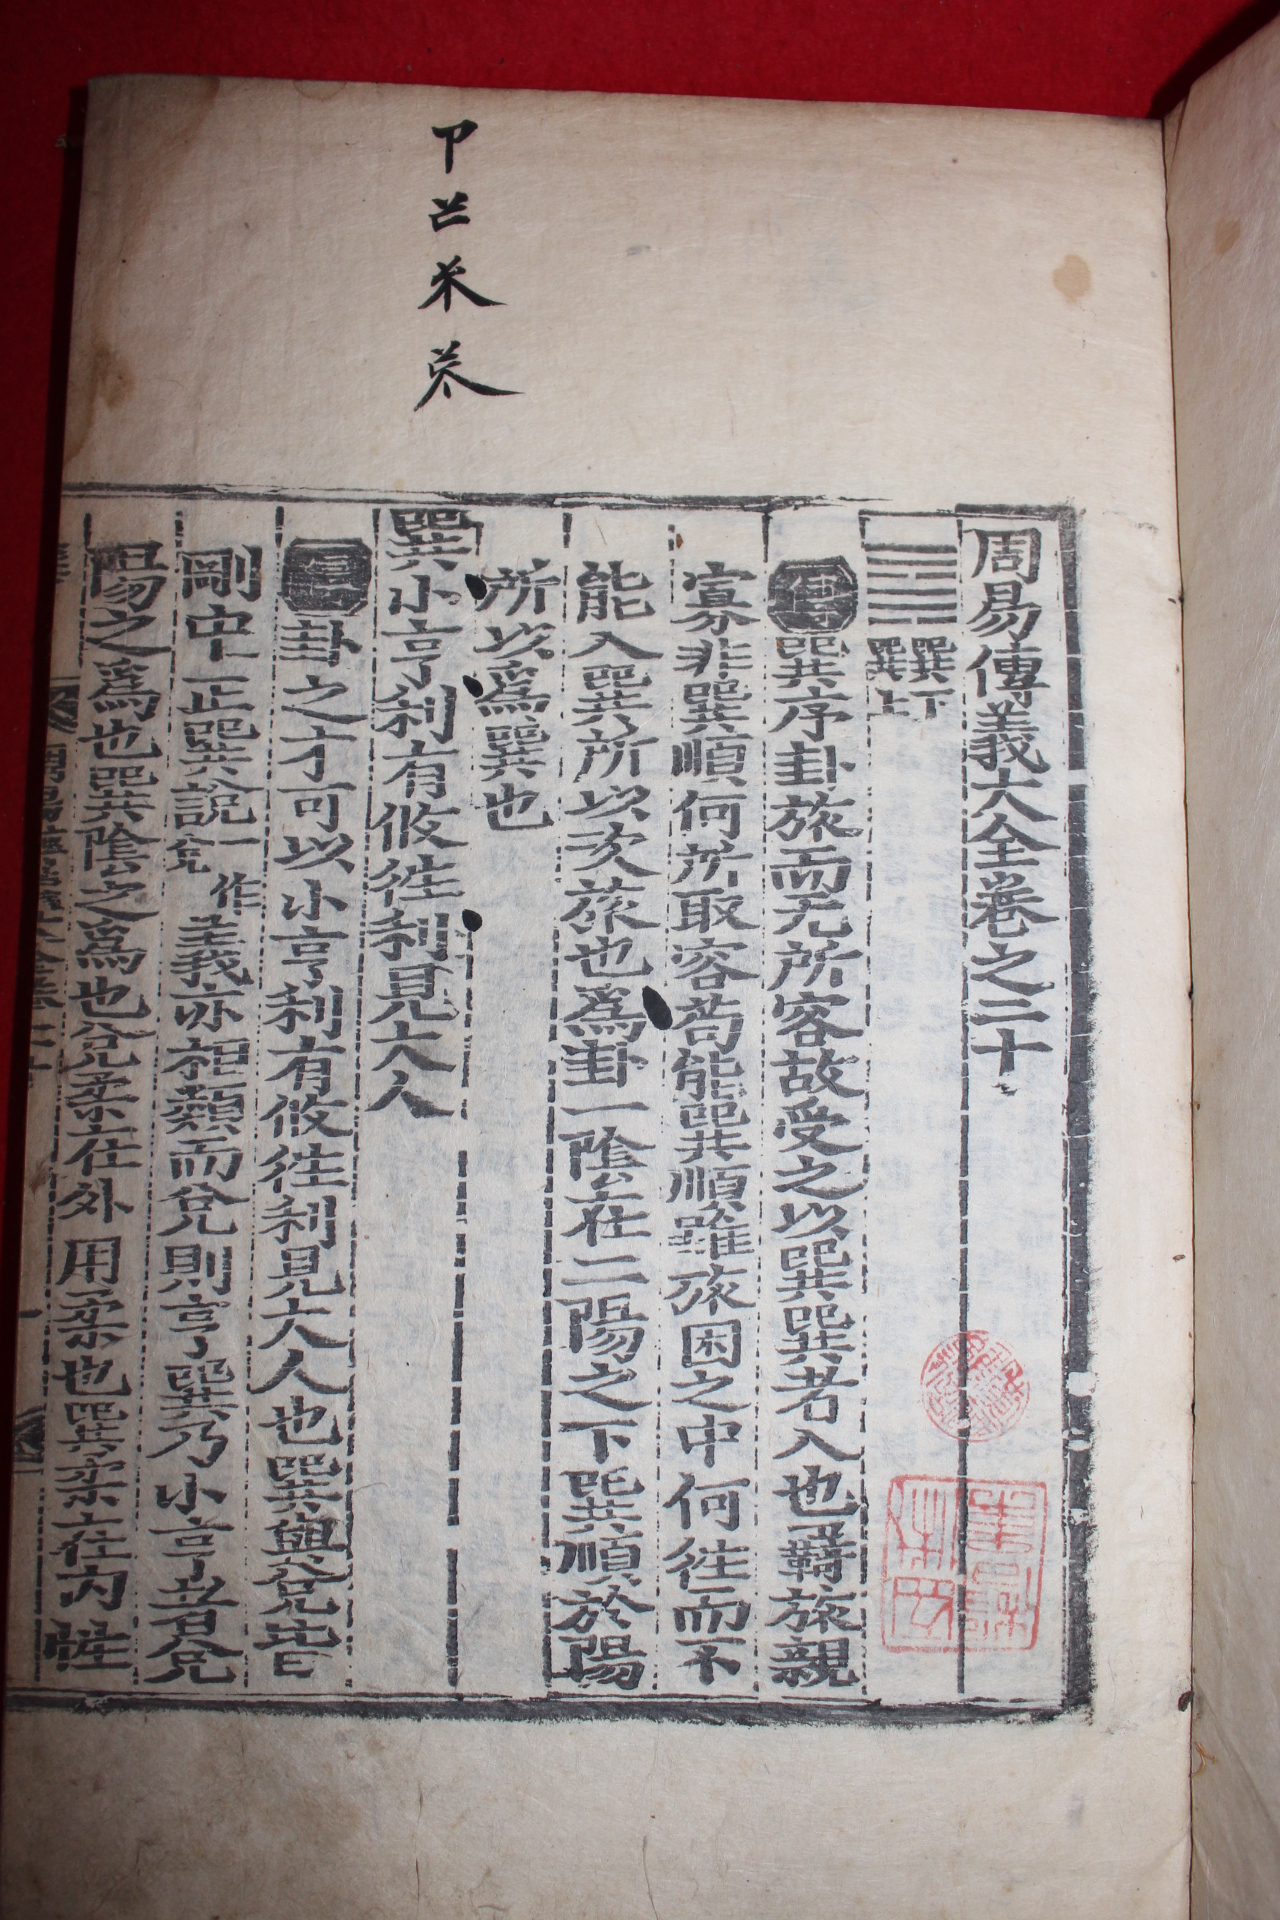 周易傳義大全卷之二十
巽下
巽上
傳巽序卦旅而无所容故受之以巽巽者入也羈旅親
寡非巽順何所取容苟能巽順雖旅困之中何往而不
能入巽所以次旅也爲卦一陰在二陽之下巽順於陽
所以爲巽也
巽小亨利有攸往利見大人
傳卦之才可以小亨利有攸往利見大人也巽與兌皆
剛中正巽說一作兌義亦相類而兌則亨巽乃小亨者兌
陽之爲也巽陰之爲也兌柔在外用柔也巽柔在內性